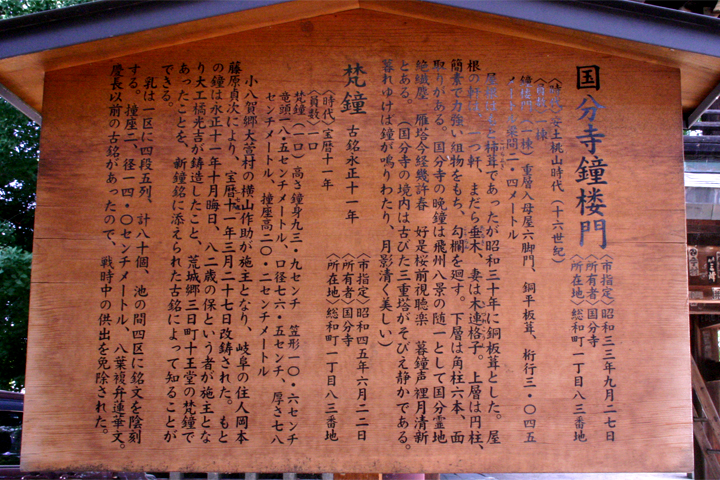 国分寺鐘楼門
〈市指定〉昭和三三年九月二七日
〈所有者〉国分寺
〈所在地〉総和町一丁目八三番地
〈時代〉安土桃山時代（十六世紀）
〈員数〉一棟
鐘楼門（一棟）重層八母屋六脚門、銅平板葺、桁行三・〇四五
メートル、梁間二・四メートル
屋根はもと杮葺であったが昭和三十年に銅板葺とした。屋
根の軒は、一軒、まだら垂木、妻は木連格子。上層は円柱、
簡素で力強い組物をもち、勾欄を廻す。下層は角柱六本、面
取りがある。国分寺の晩鐘は飛州八景の随一として国分霊地
絶繊塵 雁塔今経幾許春 好是桜前視聴楽 暮鐘声裡月清新
とある。（国分寺の境内は古びた三重塔がそびえ静かである。
暮れゆけば鐘が鳴りわたり、月影清く美しい）
梵鐘 古銘永正十一年
〈市指定〉昭和四五年六月二二日
〈所有者〉国分寺
〈所在地〉総和町一丁目八三番地
〈時代〉宝暦十一年
〈員数〉一口
梵鐘（一口）高さ鐘身九三・九センチ 笠形一〇・六センチ
竜頭一八・五センチメートル、口径七六・五センチ、厚さ七八
センチメートル、撞座高二〇・二センチメートル
小八賀郷大萱村の横山作助が施主となり、岐阜の住人岡本
藤原貞次により、宝暦十一年三月二十七日改鋳された。もと
の鐘は永正十一年十月晦日、八二歳の保という者が施主とな
り大工橘光吉が鋳造したこと、荒城郷三日町十王堂の梵鐘で
あったことを、新鐘銘に添えられた古銘によって知ることが
できる。
乳は一区に四段五列、計八十個、池の間四区に銘文を陰刻
する。撞座二、径一四・〇センチメートル、八葉複弁蓮華文。
慶長以前の古銘があったので、戦時中の供出を免除された。